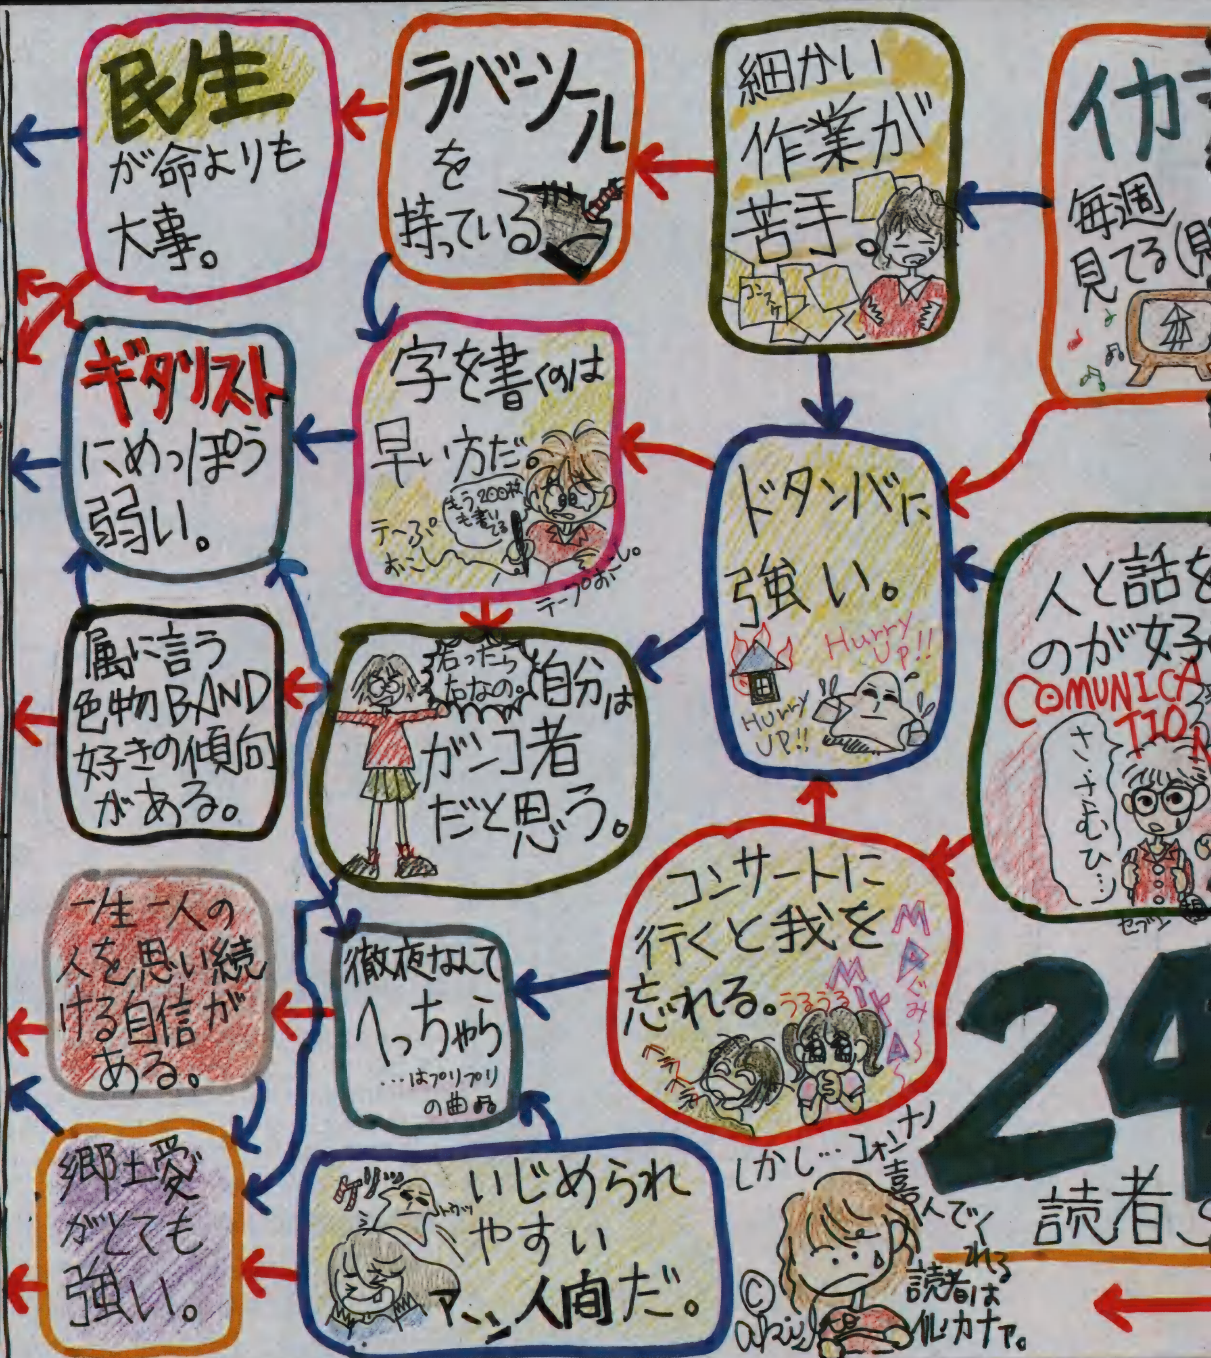 民生
が命よりも
大事。
ラバーソール
を
持っている
細かい
作業が
苦手。
イカ
毎週
見てる
ギタリスト
にめっぽう
弱い。
字を書くのは
早い方だ。
もう200枚
も書い
てる
テープおこし。
ドタンバに
強い。
Hurry
UP!!
Hurry
UP!!
人と話を
のが好
COMUNICA
TION
さ
さ
むひ…
セブン
属に言う
色物BAND
好きの傾向
がある。
右ったら
右なの。
自分は
ガンコ者
だと思う。
コンサートに
行くと我を
忘れる。
うるうる
一生一人の
人を思い続
ける自信が
ある。
徹夜なんて
へっちゃら
…はプリプリ
の曲
郷土愛
がとても
強い。
いじめられ
やすい
人間だ。
しかし…コォンナノ
喜んでく
れる
読者は
24
読者